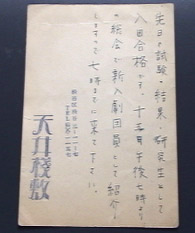 先日の試験の結果、研究生として
入団合格です。十五日午後七時より
の総会で新入劇団員として紹介
しますので七時までに来て下さい。
天井棧敷